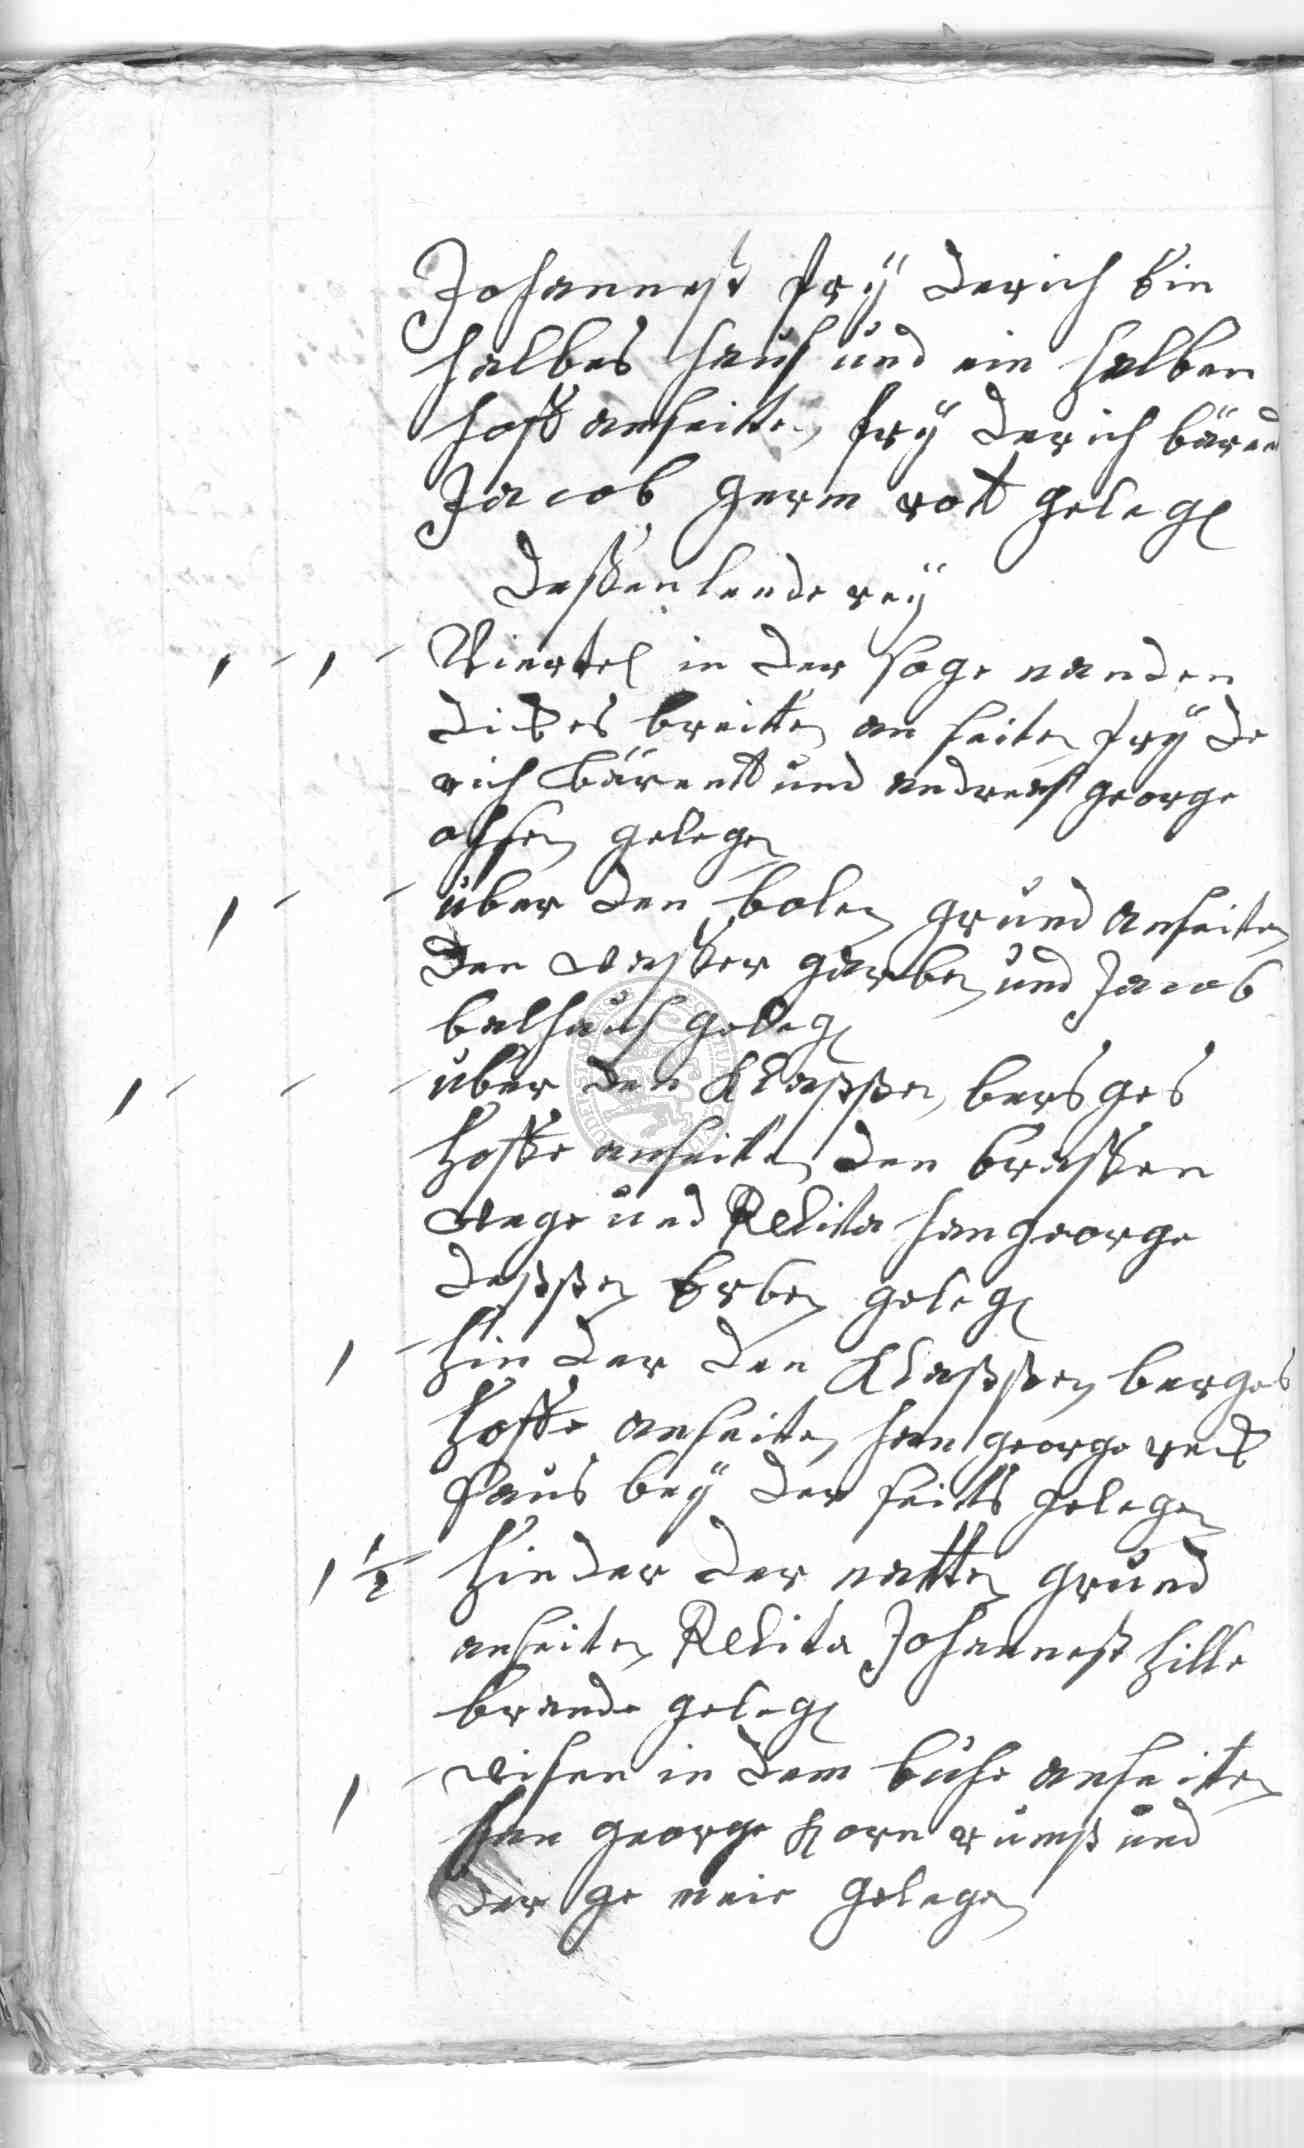 Johanneß fry derich Ein
halbes hauß und ein halben
hoff anseitten fry derich bären
Jacob germ rott geleg
deßen lenderey
1 - 1 - Viertel in der soge nanden
dickes breitten an seiten fry de
rich bärentt und andreaß george
ohsen gelegen
1 - - über den bolen grund anseiten
den waßer garben und Jacob
balhauß geleg
1 - - - über den Klaßßen berges
hoffe anseiten den breiten
wege und Relita han george
deßßen Erben geleg
1 - hinder den Klaßßen berges
hoffe anseiten han george reck
haus bey der seits gelegen
1 1/2 hinder der natten grund
anseiten Relita Johanneß hille
brande geleg
1 - wisen in dem buhe anseiten
han george Korn rumß und
der ge mein gelegen